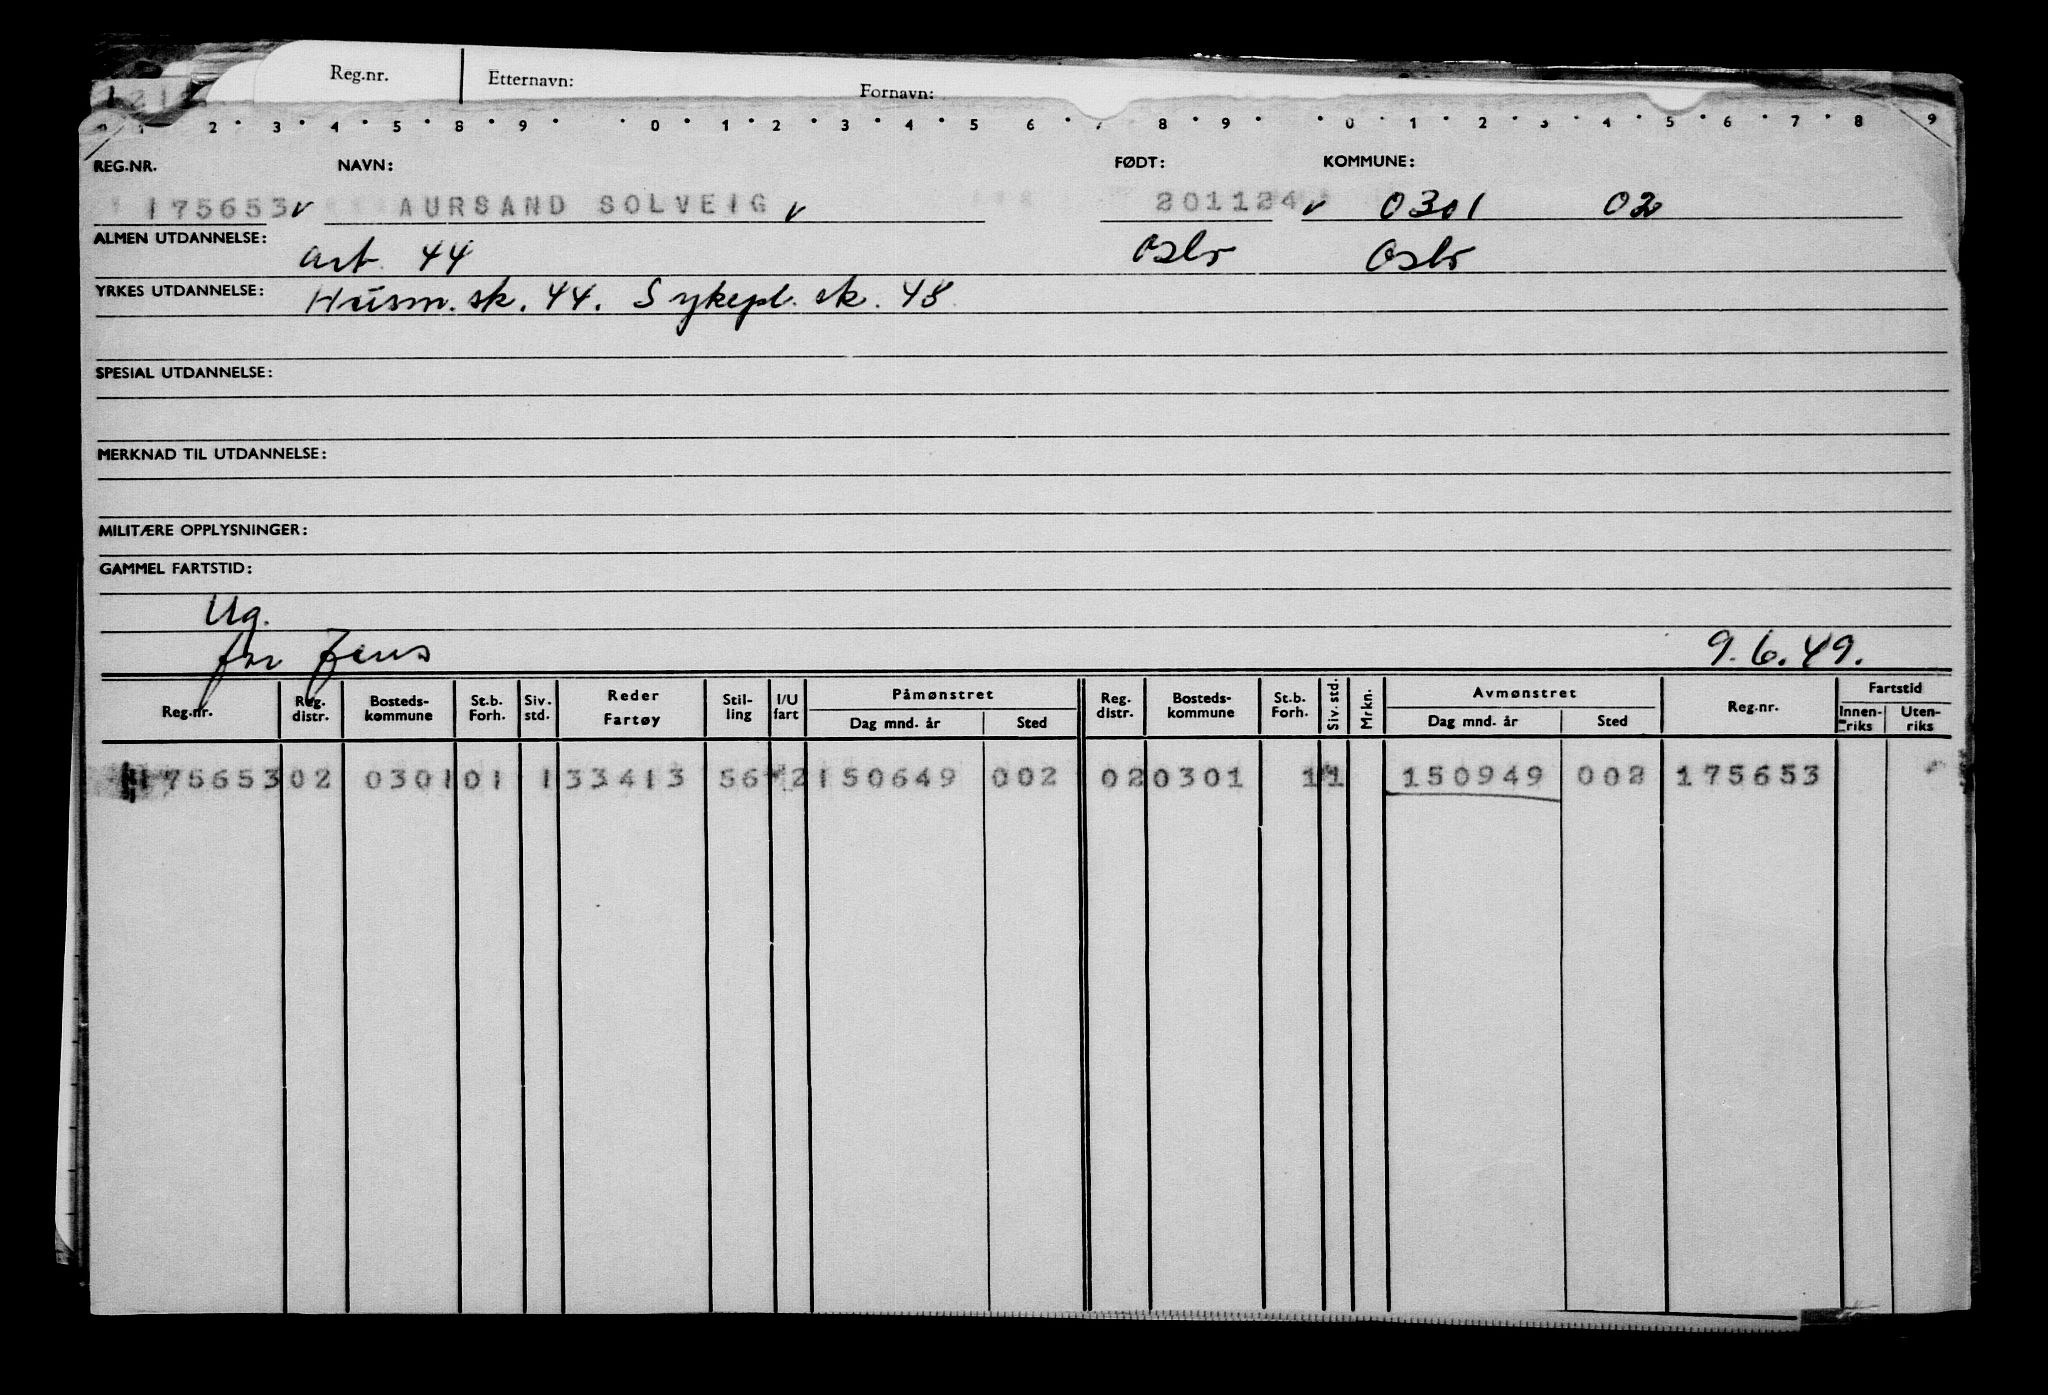 Reg.nr. Etternavn: Fornavn:
1 2 3 4 5 8 9 0 1 2 3 4 5 6 7 8 9 0 1 2 3 4 5 6 7 8 9
REG.NR. NAVN: FØDT: KOMMUNE:
175653 v AURSAND SOLVEIG v 201124 v 0301 02
ALMEN UTDANNELSE: art 44 Oslo Oslo
YRKES UTDANNELSE: Husm. sk. 44. Sykepl. sk. 48
SPESIAL UTDANNELSE:
MERKNAD TIL UTDANNELSE:
MILITÆRE OPPLYSNINGER:
GAMMEL FARTSTID:
Ug.
for 9.6.49.
Reg.nr. Reg. distr. Bosteds-kommune St.b. Forh. Siv. std. Reder Fartøy Stil-ling I/U fart Påmønstret Dag mnd. år Sted Reg. distr. Bosteds-kommune St.b. Forh. Siv. std. Mrkn. Avmønstret Dag mnd. år Sted Reg.nr. Fartstid Innen-riks Uten-riks
175653 02 0301 01 1 33413 56 2 150649 002 02 0301 1 1 150949 002 175653